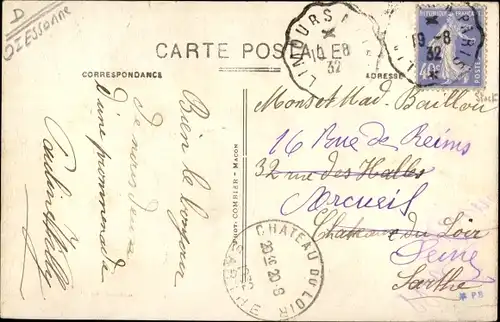 D
02 ESSONNE
CARTE POSTALE
CORRESPONDANCE
ADRESSE
LIMOURS A PARIS
19-8
32
REPUBLIQUE FRANCAISE
40c
LIMOURS A PARIS
19-8
32
Bien le bonjour
de nous deux
d'une promenade
PHOT. COMBIER - MACON
Mons et Mad. Bouillon
16 Rue de Reims
32 rue des Halles
Arcueil
Chateau du Loir
Seine
Sarthe
CHATEAU DU LOIR
SARTHE
* PB